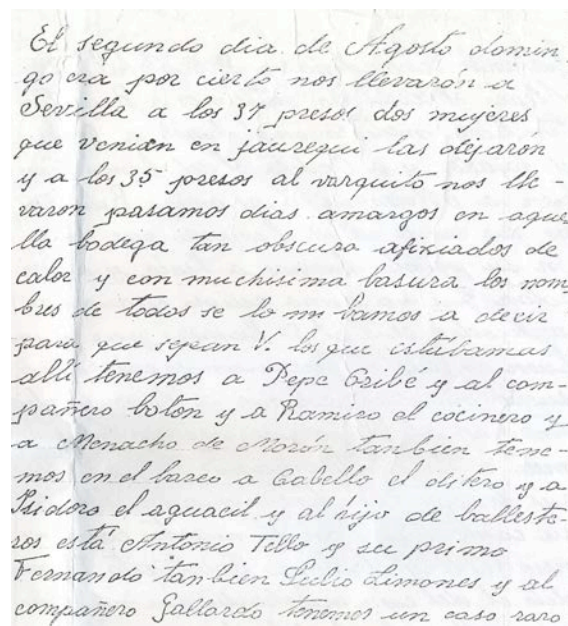 El segundo dia de Agosto domin
go era por cierto nos llevarón a
Sevilla a los 37 presos dos mujeres
que venian en jauregui las dejarón
y a los 35 presos al varquito nos lle-
varon pasamos dias amargos en aque
lla bodega tan obscura afixiados de
calor y con muchisima basura los nom
bres de todos se lo bamos a decir
para que sepan V. los que estábamos
allí tenemos a Pepe Oribé y al com-
pañero boton y a Ramiro el cocinero y
a Menacho de Morón tanbien tene-
mos en el barco a Cabello el ditero y a
Isidoro el aguacil y al hijo de balleste-
ros está Antonio Tello y su primo
Fernando tanbien Julio Limones y al
compañero Gallardo tenemos un caso raro